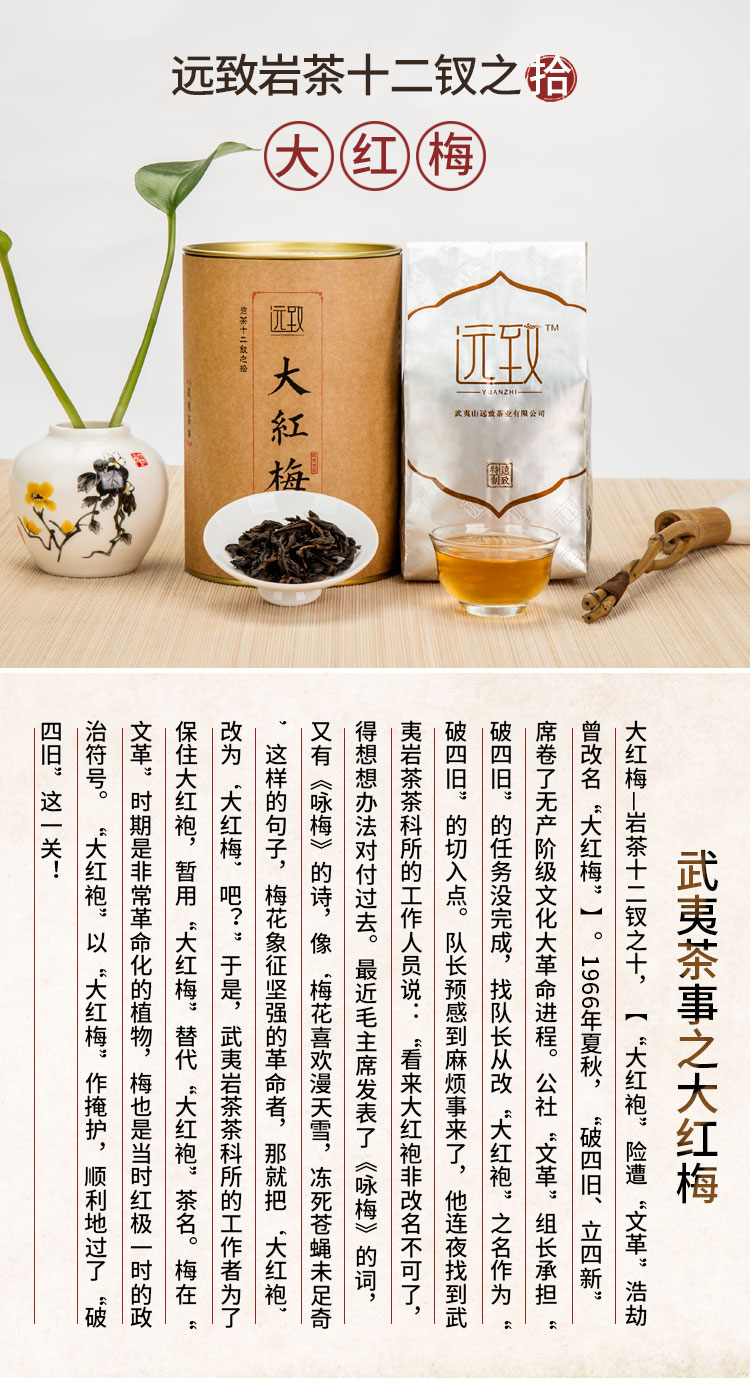 远致岩茶十二钗之拾
大红梅
远致
岩茶十二钗之拾
大紅梅
远致TM
YUANZHI
武夷山远致茶业有限公司
遠致
特制
武夷茶事之大红梅
大红梅—岩茶十二钗之十，【“大红袍”险遭“文革”浩劫
曾改名“大红梅”】。1966年夏秋，“破四旧、立四新”
席卷了无产阶级文化大革命进程。公社“文革”组长承担“
破四旧”的任务没完成，找队长从改“大红袍”之名作为“
破四旧”的切入点。队长预感到麻烦事来了，他连夜找到武
夷岩茶茶科所的工作人员说：“看来大红袍非改名不可了，
得想想办法对付过去。最近毛主席发表了《咏梅》的词，
又有《咏梅》的诗，像‘梅花喜欢漫天雪，冻死苍蝇未足奇
’这样的句子，梅花象征坚强的革命者，那就把‘大红袍’
改为‘大红梅’吧？”于是，武夷岩茶茶科所的工作者为了
保住大红袍，暂用“大红梅”替代“大红袍”茶名。梅在“
文革”时期是非常革命化的植物，梅也是当时红极一时的政
治符号。“大红袍”以“大红梅”作掩护，顺利地过了“破
四旧”这一关！